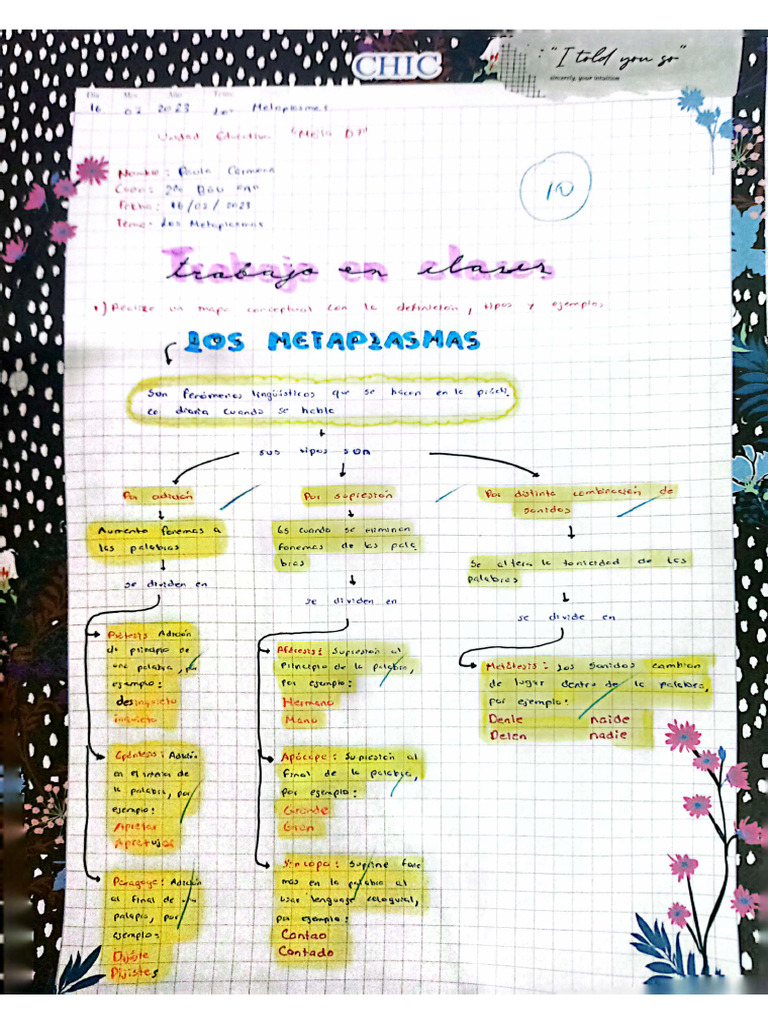 "I told you so"
sincerely, your intuition
CHIC
16 02 2023 Los Metaplasmas
Unidad Educativa "Mejía D7"
Nombre: Paula Carmona
Curso: 2do BGU "A"
Fecha: 16/02/2023
Tema: Los Metaplasmas
10
Trabajo en clases
1) Realize un mapa conceptual con la definición, tipos y ejemplos
LOS METAPLASMAS
Son fenómenos lingüísticos que se hacen en la prácti
ca diaria cuando se habla
sus tipos son
Por adición
Aumenta fonemas a
las palabras
se dividen en
Prótesis Adición
de principio de
una palabra, por
ejemplo:
desinquieto
inquieto
Epéntesis: Adición
en el interior de
la palabra, por
ejemplo:
Apretar
Apretujar
Paragoge: Adición
al final de una
palapra, por
ejemplo:
Dijiste
Dijistes
Por supresión
Es cuando se eliminan
fonemas de las pala
bras
se dividen en
Aféresis: Supresión al
principio de la palabra,
por ejemplo:
Hermano
Mano
Apócope: Supresión al
final de la palabra,
por ejemplo:
Grande
Gran
Síncopa: Suprime fone
mas en la palabra al
usar lenguage coloquial,
por ejemplo:
Contao
Contado
Por distinta combinación de
sonidos
Se altera la tonicidad de las
palabras
se divide en
Metátesis: Los sonidos cambian
de lugar dentro de la palabra,
por ejemplo:
Denle naide
Delen nadie